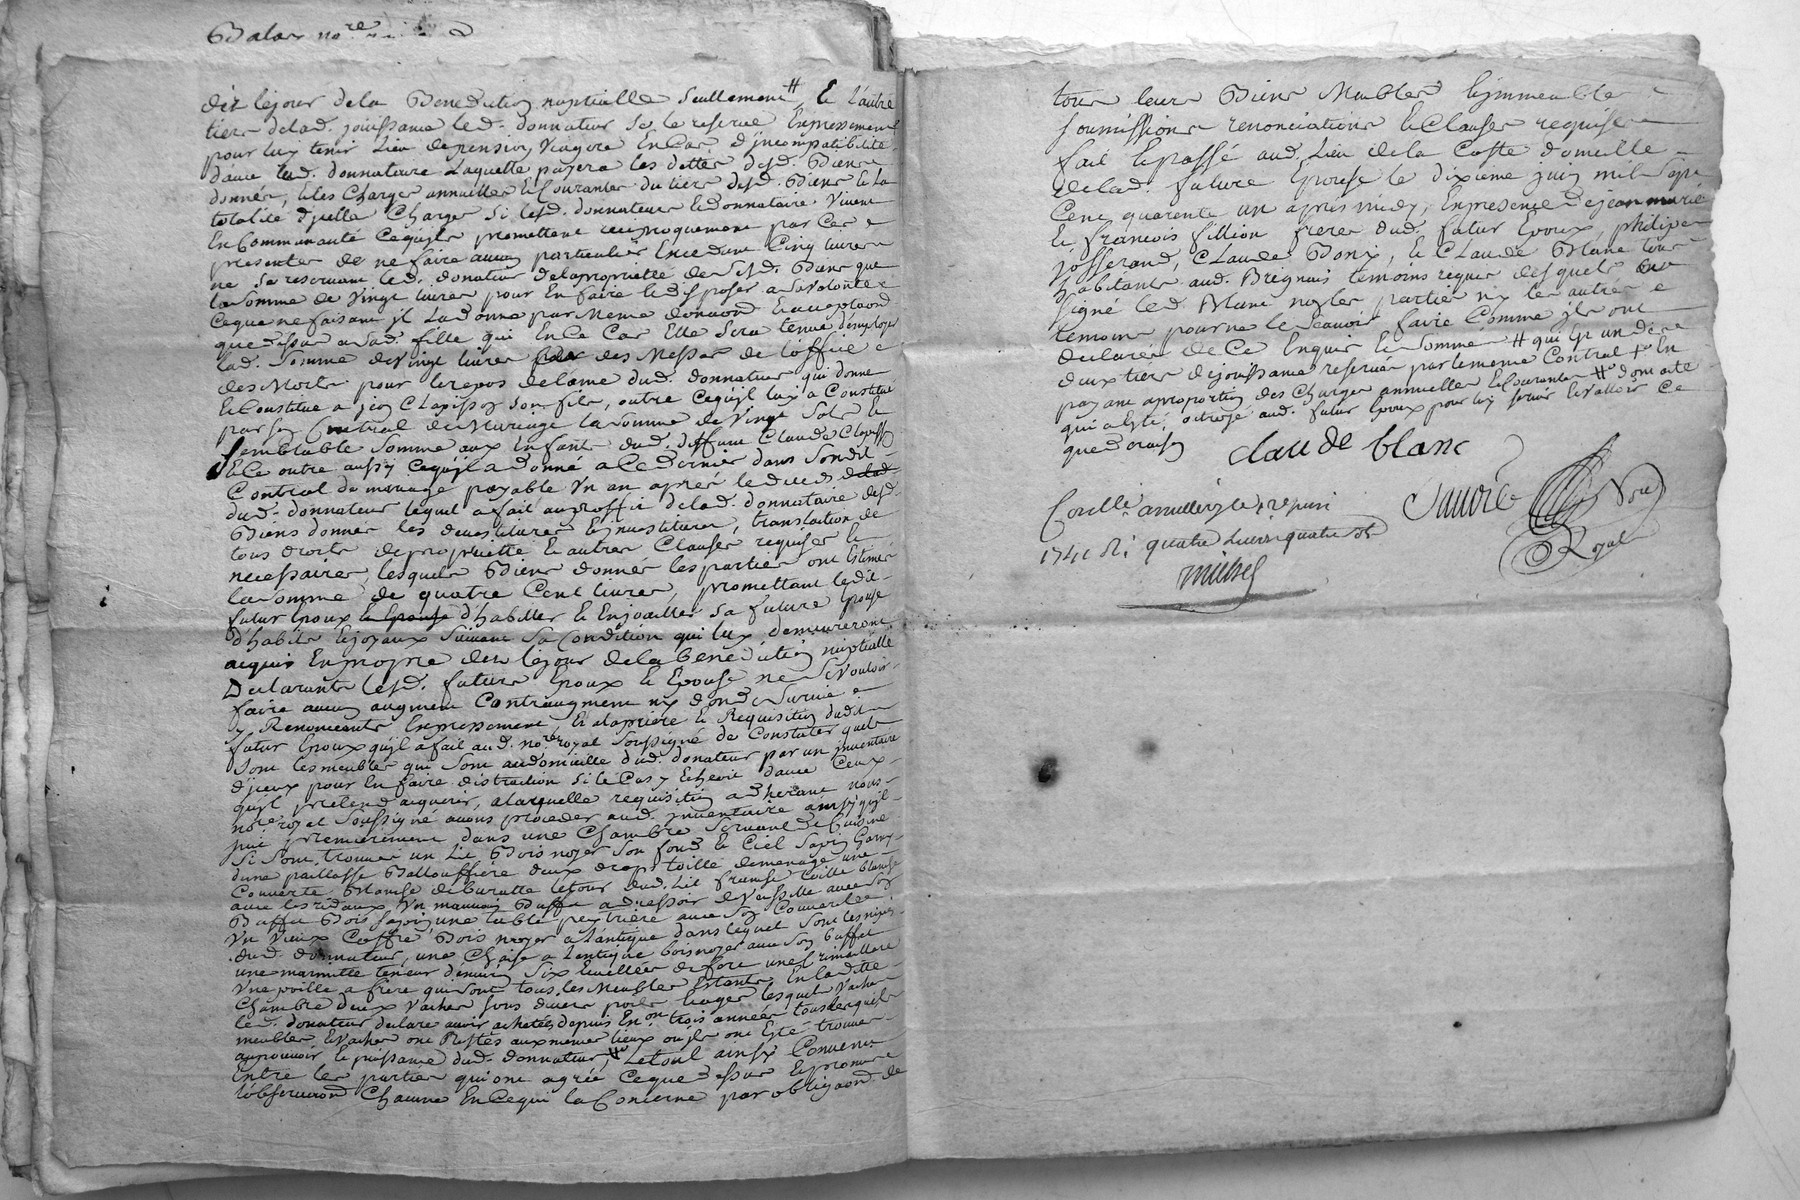 Balas no.re
dèz lejour dela Benediction nuptialle Seullement # & L'autre
tiers delad. jouissance led. donnateur Se le reserve Expressement
pour luy tenir Lieu depension Viagere En Cas d'jncompatibilité
davec lad. donnataire Laquelle payera les dettes desd. Biens
donnés, & les Charges annuelles & Courantes du tiers desd. Biens & La
totalité d'jcelle Charges Si lesd. donnateur & donnataire Vivent
En Communauté Cequ'jls promettent reciproquement par Ces
presentes de ne faire aucun particulier Excedant Cinq livres
ne Se reservant led. donateur delapropriété de Sesd. Biens que
la Somme de Vingt livres pour En faire & disposer a Sa Volonté
Ceque ne faisant jl La donne par Meme donaon
que dessus a Sad. fille qui En Ce Cas Elle Sera tenue d'employer
lad. Somme de Vingt livres des Messes de l'office
des Morts pour lerepos delame dud. donnateur qui donne
& Constitue a jean Clapisson Son fils, outre Cequ'jl luy a Constitué
par son Contrat de Mariage la Somme de Vingt Sols &
Semblable Somme aux Enfants dud. deffunt Claude Clapisson
& Ce outre aussy Cequ'jl a donné a Ce dernier dans Sondit
Contrat de mariage payable Un an aprés le deces
dud. donnateur lequel a fait au proffit delad. donnataire desd.
Biens donnés les devestitures & jnvestitures, translation de
tous droits depropriette & autres Clauses requises &
necessaires, lesquels Biens donnés les parties ont Estimés
la Somme de quatre Cent livres, promettant ledit
futur Epoux d'habiller & Enjoailler Sa future Epouse
d'habits & joyaux Suivant Sa Condition qui luy demeureront
acquis En propre dez lejour dela benediction nuptialle
Declarants lesd. futurs Epoux & Epouse ne Se Vouloir
faire aucun augment Contraugment ny dond de Survie
y Renonceants Expressement, & alapriere & Requisition dudit
futur Epoux qu'jl a fait aud. no.re royal Soussigné de Constater quels
Sont les meubles qui Sont au domicille dud. donateur par un jnventaire
d'jceux pour En faire distraction Si le Cas y Echeoit davec Ceux
qu'jl pretend acquerir, alaquelle requisition adherant nous
no.re royal Soussigné avons procedé aud. jnventaire ainsy qu'jl
Suit premierement dans une Chambre Servant de Cuisine
Si Sont trouvés un Lit Bois noyer Son fond & Ciel Sapin Garny
dune paillasse Balloufiere deux draps toille demenage une
Couverte blanche de buratte letour dud. Lit franse toille blanche
avec les rideaux Un mauvais Buffet a dressoir de Vaisselle avec Son
Buffet Bois Sapin, une table pestriere avec Son Couvercle
Un Vieux Coffre Bois noyer a Lantique dans lequel Sont les nipes
dud. donnateur, une Chaise a Lantique bois noyer avec Son buffet
une marmitte teneur denviron Six Cueillées de fert une Crimaillere
Une poille a frire qui Sont tous les Meubles Estants En laditte
Chambre deux Vaches Sous divers poils & ages lesquels Vaches
led. donateur declare avoir achetées depuis En.on trois années tous lesquels
meubles & Vaches ont Restés aux memes lieux où jls ont Esté trouvés
aupouvoir & puissance dud. donnateur, Letout ainsy Convenu
Entre les parties qui ont agréé Ceque dessus & promis
l'observer Chacune En Cequi la Concerne par obligaon de
tous leurs Biens Meubles & jmmeubles
soumissions renonciations & Clauses requises
fait & passé aud. Lieu de la Coste domicille
delad. future Epouse le dixieme juin mil Sept
Cent quarente un aprés midy, En presence de jean marie
& francois fillion freres dud. futur Epoux, philipe
josserand, Claude Bonx, & Claude Blanc tous
habitants aud. Brignais temoins requis desquels ont
signé led. Blanc nonles parties ny les autres
temoins pour ne le Scavoir faire Comme jls ont
declarés de Ce Enquis & Sommés # qui Est un des
deux tiers de jouissance reservée par lememe Contrat + En
payant aproportion des Charges annuelles & Courantes #° dont acte
qui a Esté, octroyé aud. futur Epoux pour luy servir & Valloir Ce
que de raison
claude blanc
Sauvié No.re Royal
Controllé a le juin
1741 R. quatre Livres quatre sols
michel